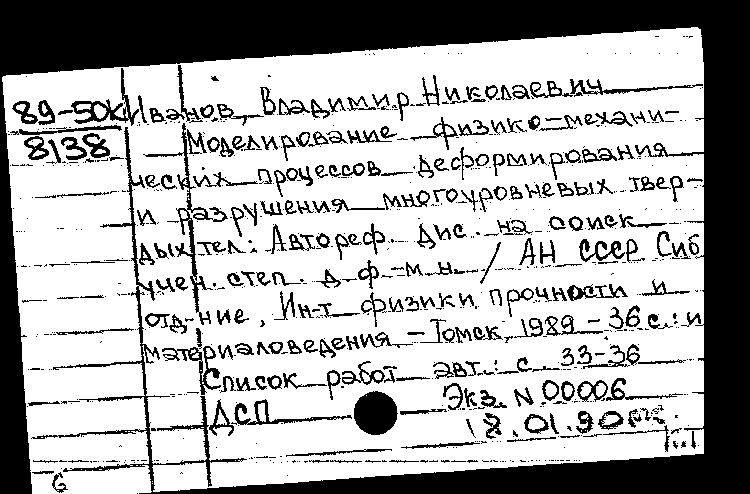 89-50к Иванов, Владимир Николаевич
8138 Моделирование физико-механи-
ческих процессов деформирования
и разрушения многоуровневых твер-
дых тел: Автореф. дис. на соиск
учен. степ. д. ф.-м. н. / АН СССР Сиб
отд-ние, Ин-т физики прочности и
материаловедения. - Томск, 1989 - 36 с.: и
Список работ авт.: с. 33-36
ДСП Экз. N 00006
18.01.90